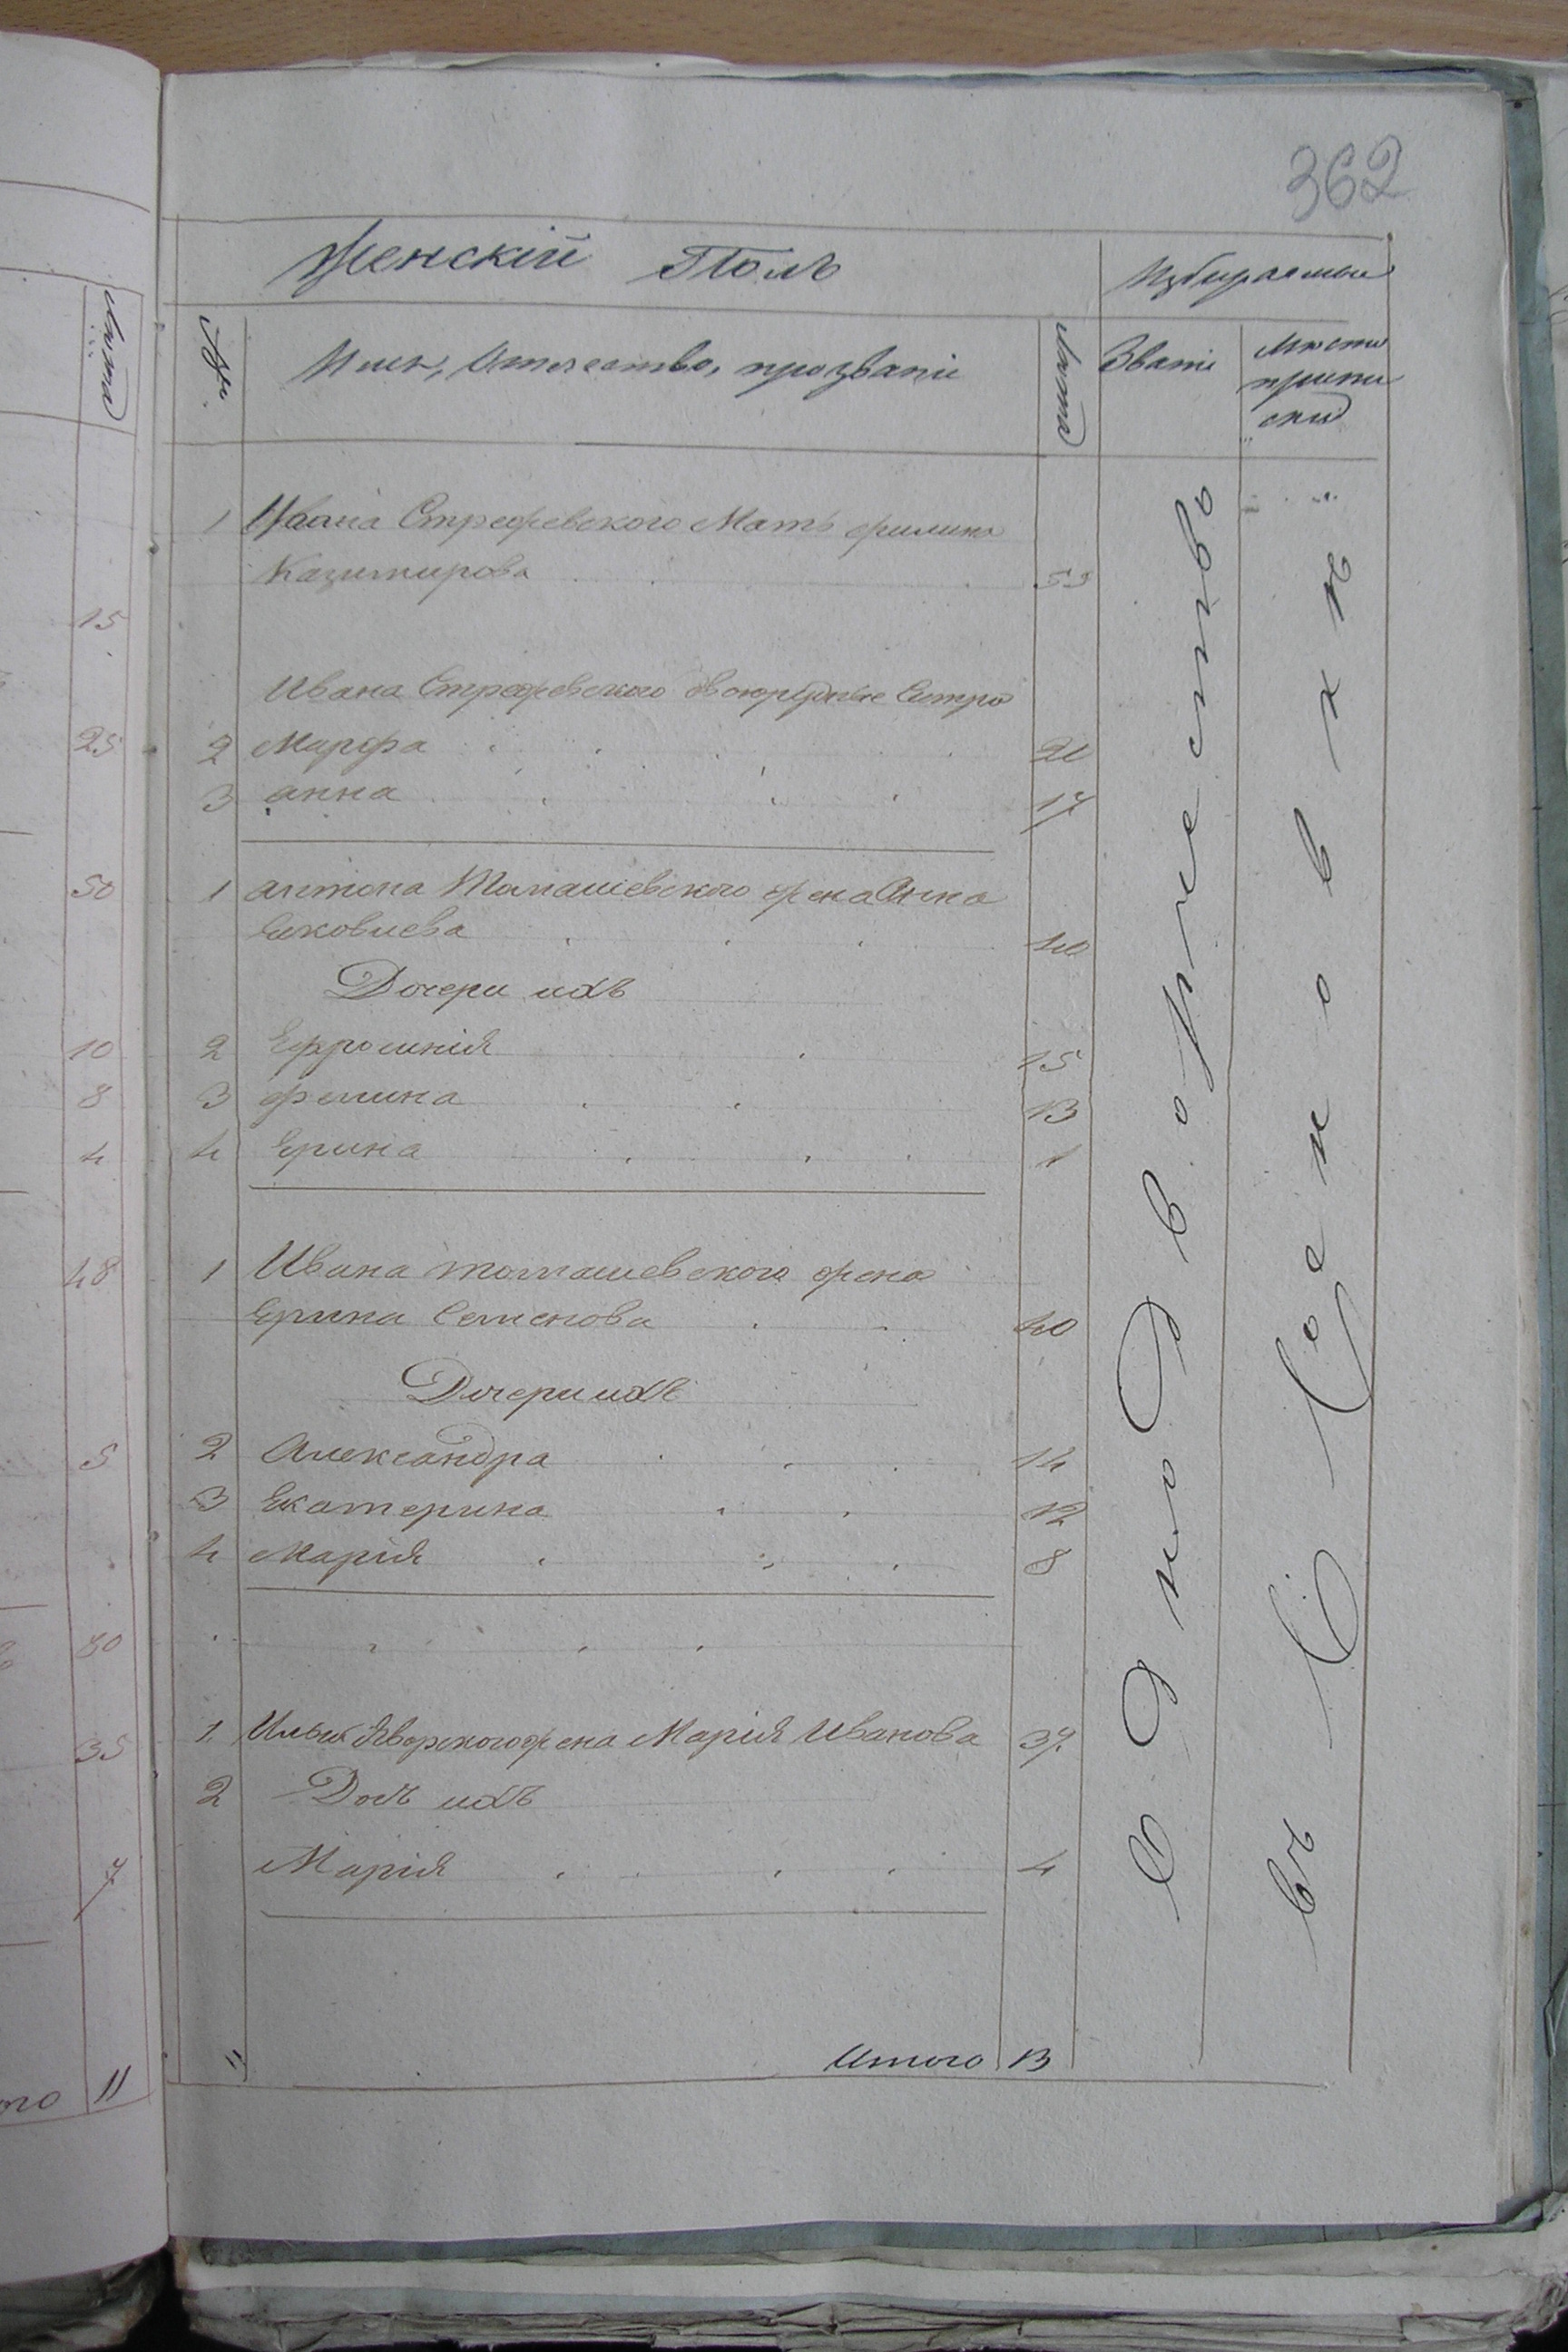 362
Женскій Полъ
Избираемые
Лѣта
№
Имя, Отечество, прозваніе
Лѣта
Званіе
Мѣсто
припи
ски
1 Ивана Стрефевского Мать
Казимирова 53
15
Ивана Стрефевского двоюродные Сестры
25
2 Марфа 20
3 анна 17
50
1 антона Томашевского жена Анна
Яковлева 40
Дочери ихъ
10
2 Ефросинія 15
8
3 фелина 13
4
4 Ерина 1
48
1 Ивана томашевского жена
Ерина Семенова 40
Дочери ихъ
5
2 Александра 14
3 Екатерина 12
4 Марія 8
30
35
1 Ильи Яворского жена Марія Иванова 37
2 Дочь ихъ
7
Марія 4
11
Итого 13
Однодворчество
въ